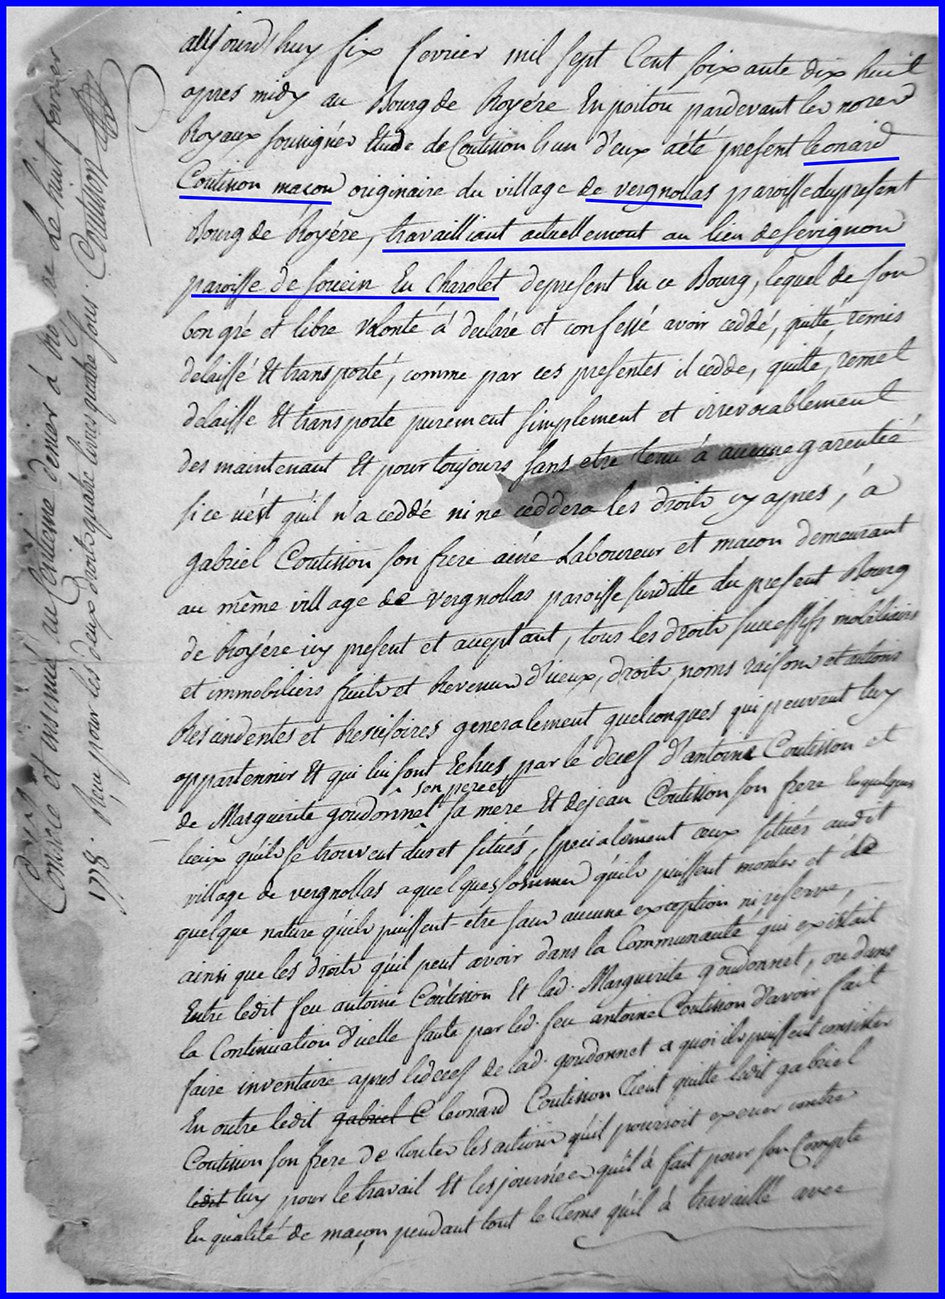 aujourd'huy six fevrier mil sept Cent soixante dix huit
apres midy au Bourg de Royére En poitou pardevant les nores
Royaux soussignés Etude de Coutisson l'un d'eux a été present Leonard
Coutisson maçon originaire du village de vergnollas paroisse du present
Bourg de Royére, travailliant actuellement au lieu de sevignon
paroisse de souein En Charolet de present En ce Bourg, lequel de son
bon gré et libre volonté á declaré et confessé avoir ceddé, quitté, remis
delaissé Et transporté, comme par ces presentes il cedde, quitte, remet
delaisse Et transporte purement simplement et irrevocablement
des maintenant Et pour toujours sans etre tenu á aucune garentie
si ce n'est qu'il n'a ceddé ni ne ceddera les droits cy apres, á
gabriel Coutisson son frere ainé Laboureur et macon demeurant
au même village de vergnollas paroisse susditte du present Bourg
de Royére icy present et aceptant, tous les droits successifs mobiliaires
et immobiliers fruits et Revenus d'iceux, droits, noms raisons et actions
Rescindentes et Rescisoires generalement quelconques qui peuvent luy
appartennir Et qui lui sont Echus par le deces d'antoine Coutisson et
son pere et
de Marguerite goudonnet sa mere Et de jean Coutisson son frere En quelques
lieux qu'ils se trouvent dus et situés, specialement ceux situés audit
village de vergnollas a quelques sommes qu'ils puissent monter et de
quelque nature qu'ils puissent etre sans aucune exception ni reserve,
ainsi que les droits qu'il peut avoir dans la Communauté qui existait
Entre ledit feu antoine Coutisson Et lad. Marguerite goudonnet, ou dans
la Continuation d'icelle faute par led. feu antoine Coutisson d'avoir fait
faire inventaire apres le deces de lad. goudonnet a quoi ils puissent consister
En outre ledit gabriel C leonard Coutisson tient quitte ledit gabriel
Coutisson son frere de toutes les actions qu'il pourroit exercer contre
ledit luy pour le travail Et les journées qu'il á fait pour son Compte
En qualité de maçon pendant tout le tems qu'il á travaillé avec
Controlé et insinué au Centieme denier á le huit fevrier
1778. Reçu pour les deux droits quatre livres quatre sous. Coutisson